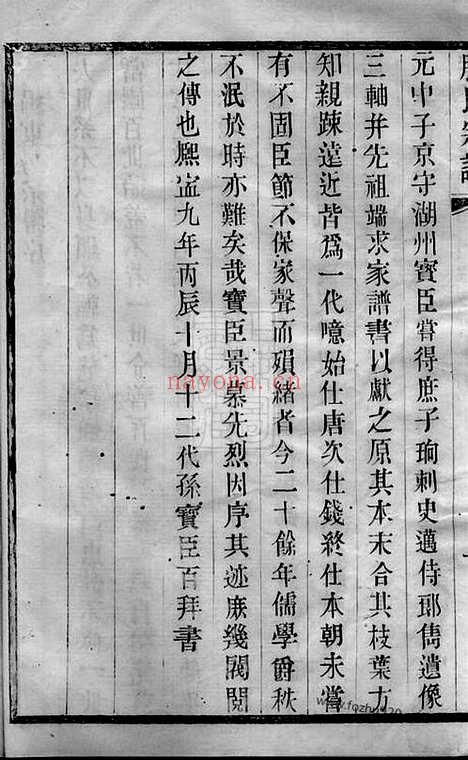 元中子京守湖州寶臣嘗得庶子珦刺史邁侍郎儁遺像
三軸并先祖端求家譜書以獻之原其本末合其枝葉方
知親踈遠近皆爲一代噫始仕唐次仕錢終仕本朝未嘗
有不固臣節不保家聲而殞緒者今二十餘年儒學爵秩
不泯於時亦難矣哉寶臣景慕先烈因序其迹庶幾閥閱
之傳也熈寧九年丙辰十月十二代孫寶臣百拜書
nayona.cn